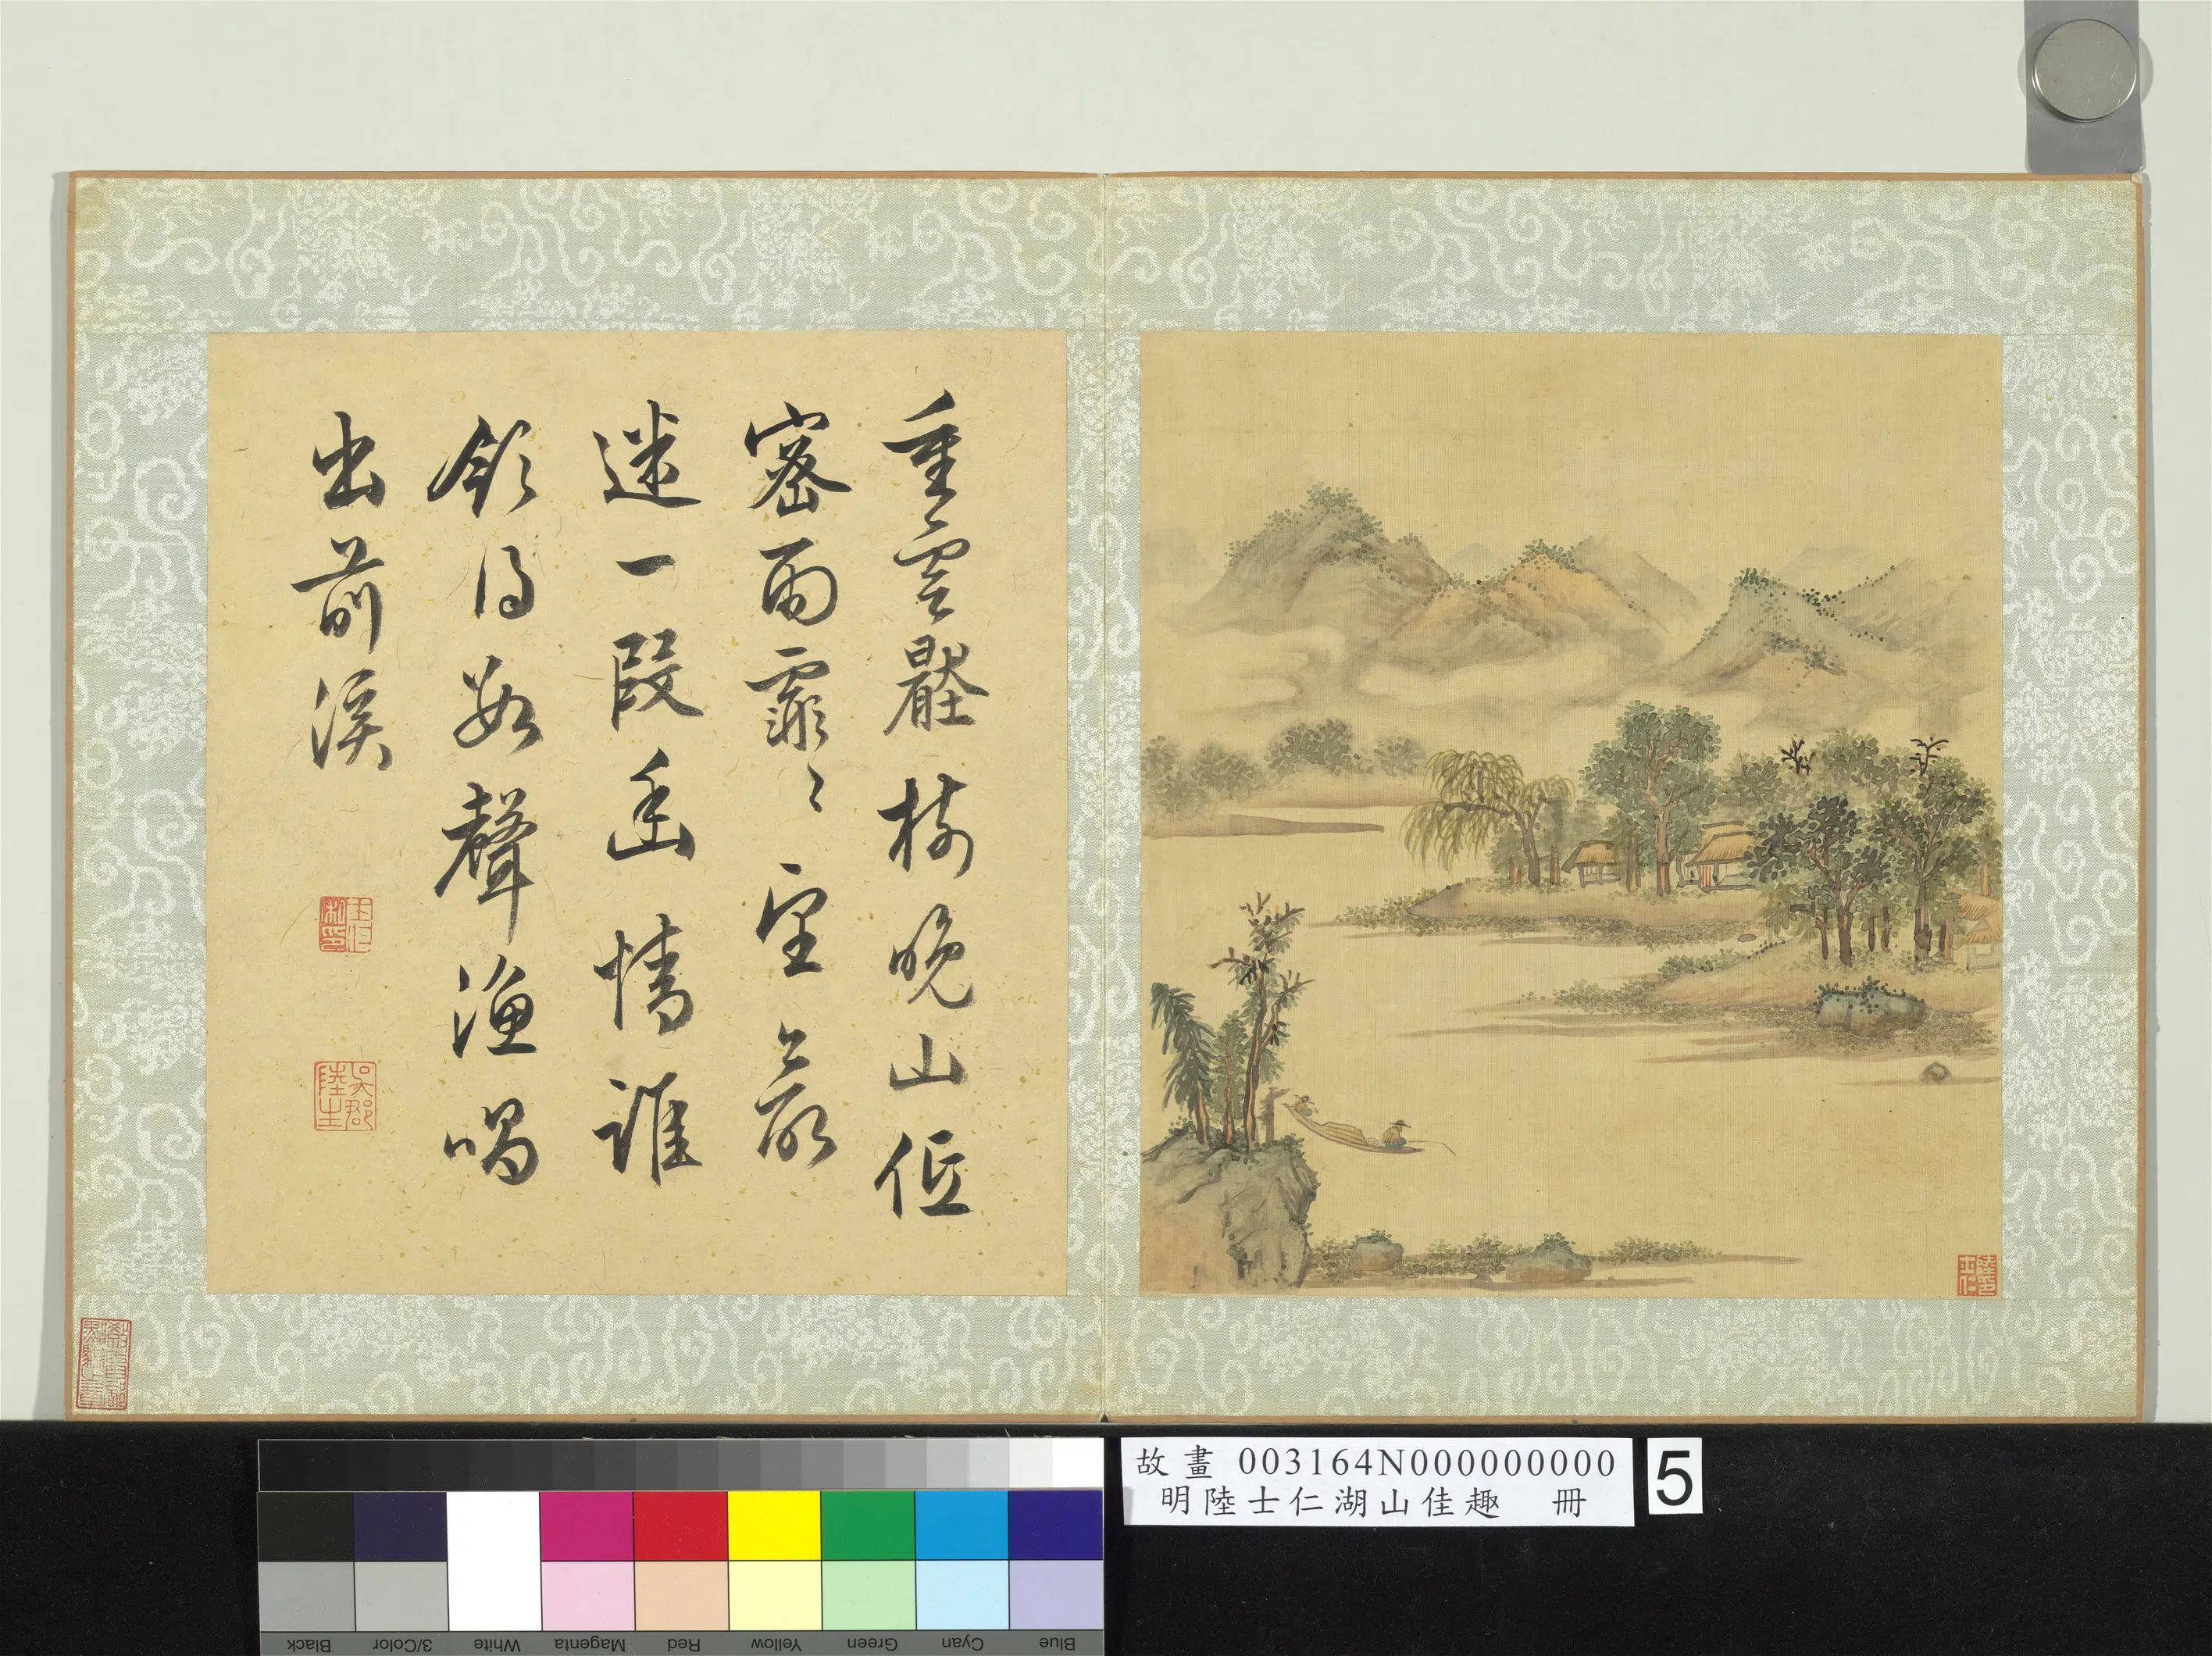 重雲壓樹晚山低
密雨霏〻望最
迷一段幽情誰
領得數聲漁唱
出前溪
吳郡陸生
故畫 003164N000000000
明陸士仁湖山佳趣 冊
5
Black
3/Color
White
Magenta
Red
Yellow
Green
Cyan
Blue